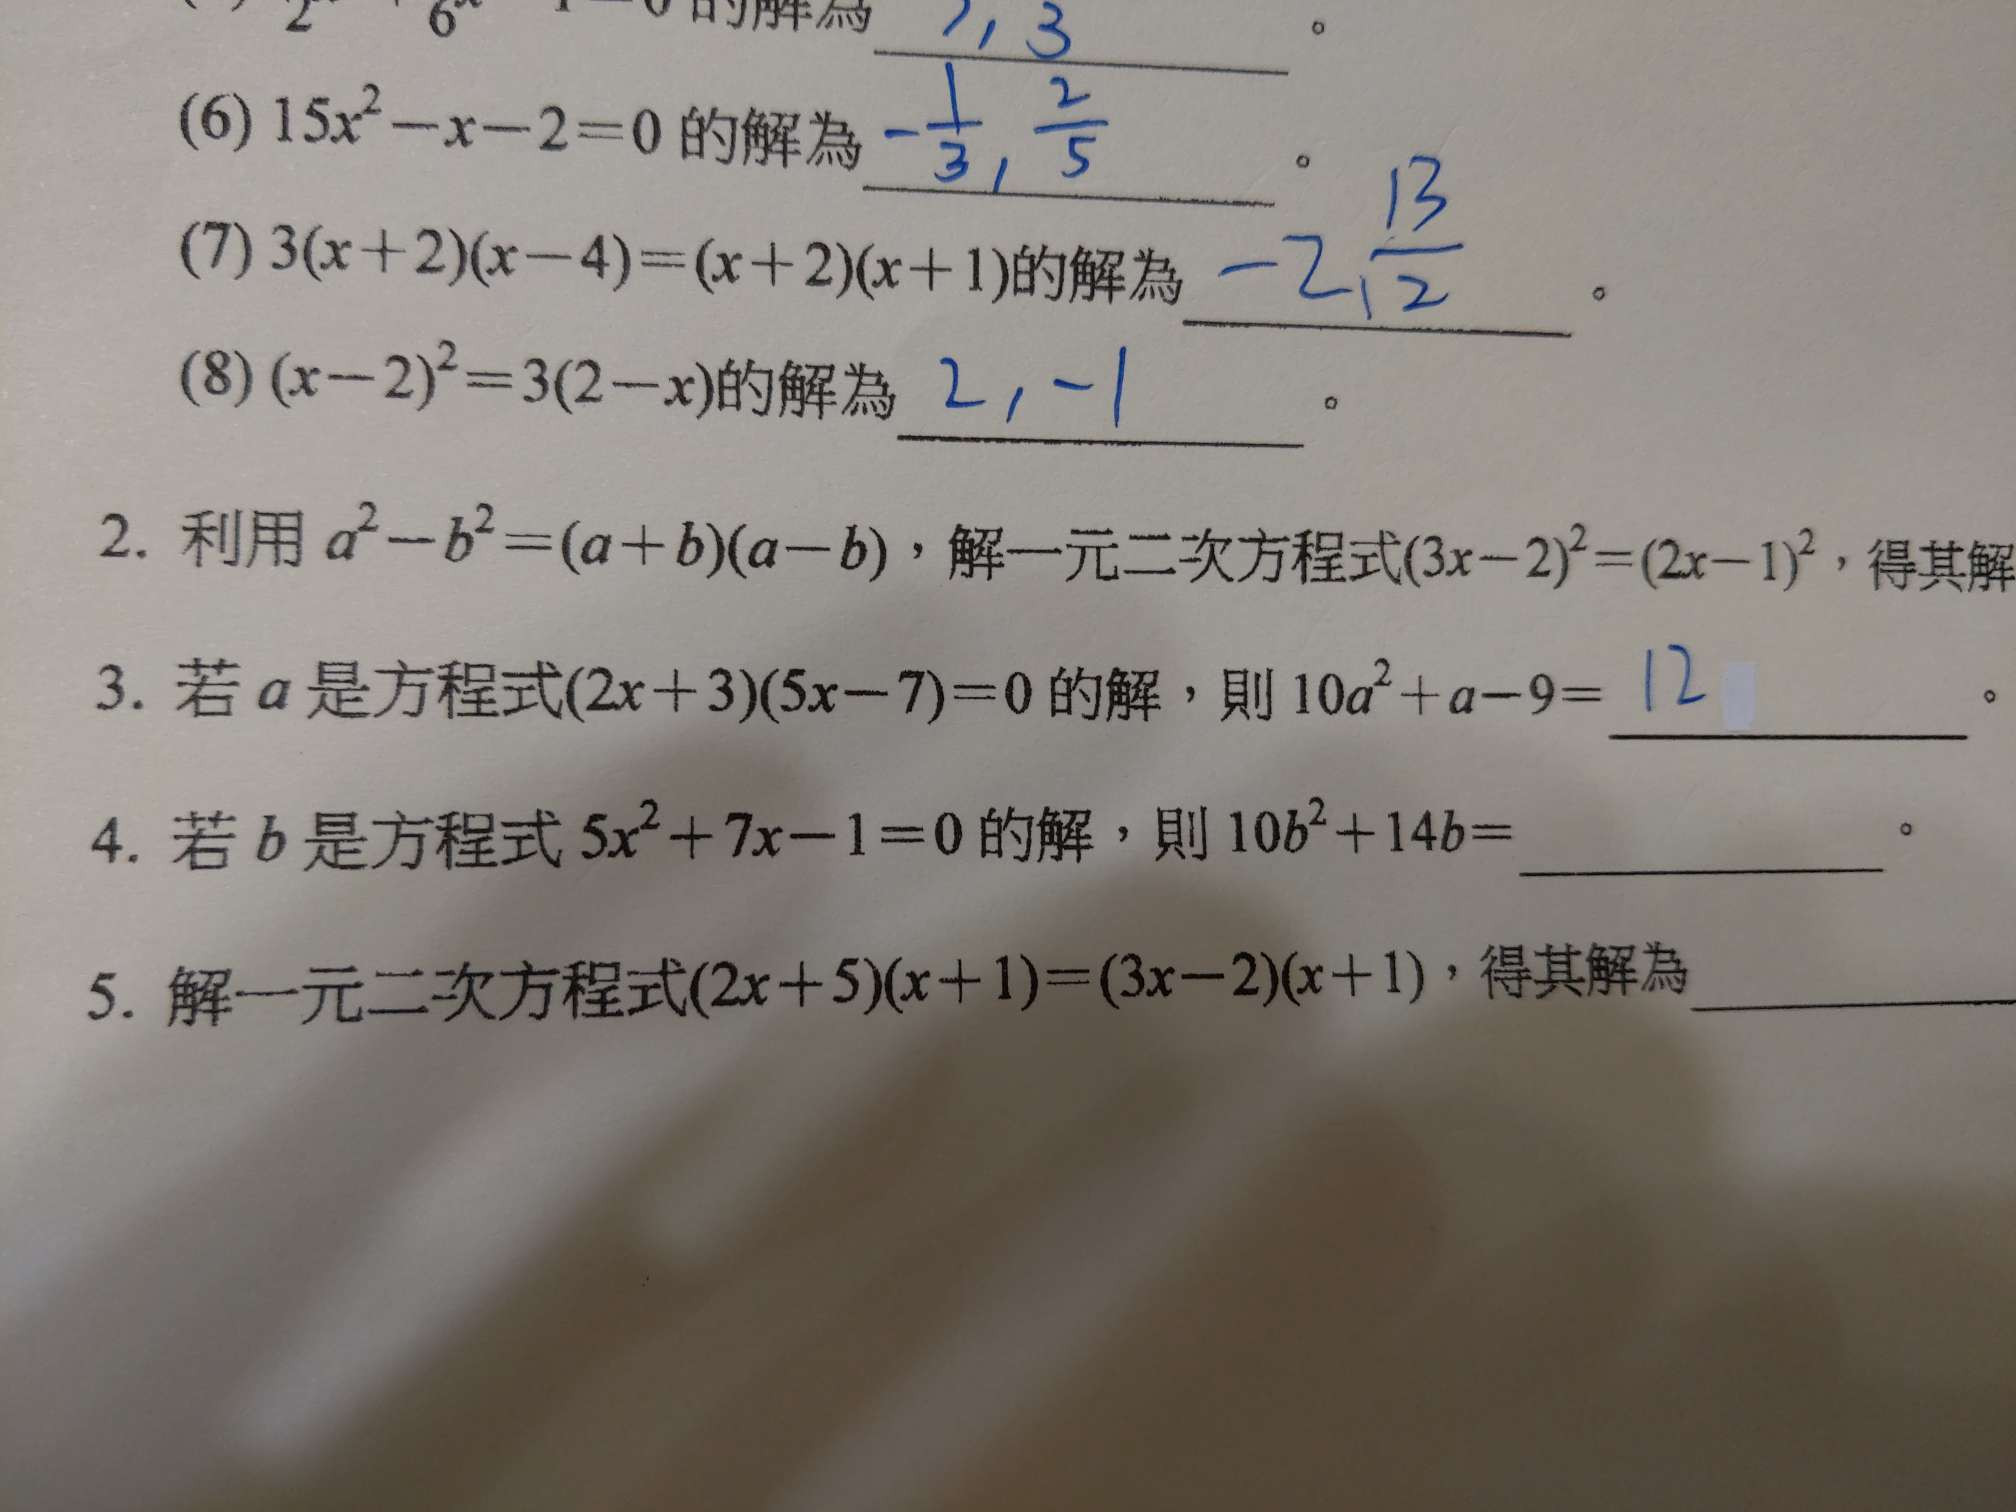 2 6 的解為 , 3 。
(6) 15x²－x－2＝0 的解為 -1/3, 2/5 。
(7) 3(x＋2)(x－4)＝(x＋2)(x＋1)的解為 -2, 13/2 。
(8) (x－2)²＝3(2－x)的解為 2, -1 。
2. 利用 a²－b²＝(a＋b)(a－b)，解一元二次方程式(3x－2)²＝(2x－1)²，得其解
3. 若 a 是方程式(2x＋3)(5x－7)＝0 的解，則 10a²＋a－9＝ 12 。
4. 若 b 是方程式 5x²＋7x－1＝0 的解，則 10b²＋14b＝ 。
5. 解一元二次方程式(2x＋5)(x＋1)＝(3x－2)(x＋1)，得其解為